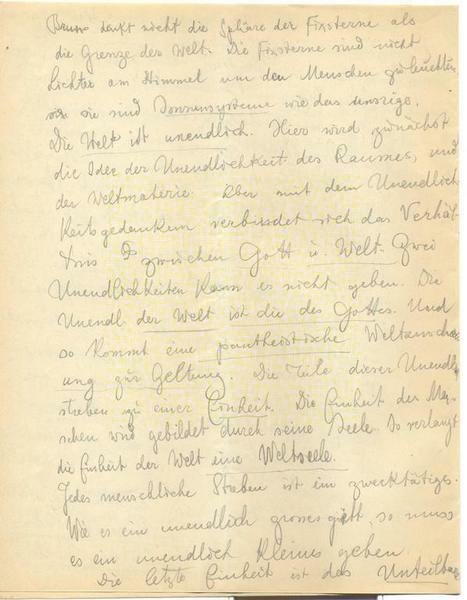 Bruno denkt nicht die Sphäre der Fixsterne als
die Grenze der Welt. Die Fixsterne sind nicht
Lichter am Himmel um den Menschen zu leuchten
sie sind Sonnensysteme wie das unsrige.
Die Welt ist unendlich. Hier wird zunächst
die Idee der Unendlichkeit des Raumes, und
der Weltmaterie. Aber mit dem Unendlich
keitsgedanken verbindet sich das Verhält-
tnis zwischen Gott u. Welt. Zwei
Unendlichkeiten kann es nicht geben. Die
Unendl. der Welt ist die des Gottes. Und
so kommt eine pantheistische Weltanschau
ung zur Geltung. Die Teile dieser Unendl.
streben zu einer Einheit. Die Einheit der Men
schen wird gebildet durch seine Seele. So verlangt
die Einheit der Welt eine Weltseele.
Jedes menschliche Streben ist ein zwecktätiges.
Wie es ein unendlich grosses gibt, so muss
es ein unendlich kleines geben
Die letzte Einheit ist das Unteilbare